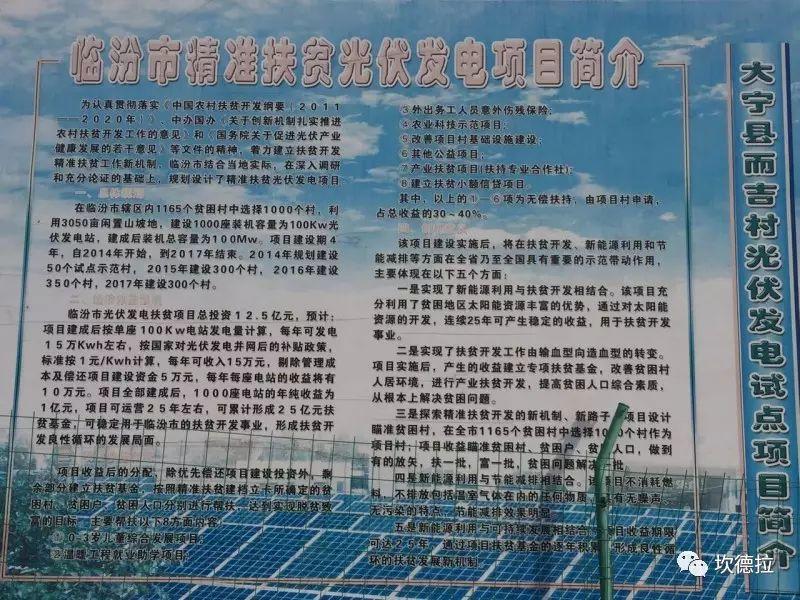 临汾市精准扶贫光伏发电项目简介
为认真贯彻落实《中国农村扶贫开发纲要（2011
——2020年）》、中办国办《关于创新机制扎实推进
农村扶贫开发工作的意见》和《国务院关于促进光伏产业
健康发展的若干意见》等文件的精神，着力建立扶贫开发
精准扶贫工作新机制，临汾市结合当地实际，在深入调研
和充分论证的基础上，规划设计了精准扶贫光伏发电项目。
一、
在临汾市辖区内1165个贫困村中选择1000个村，利
用3050亩闲置山坡地，建设1000座装机容量为100Kw光
伏发电站，建成后装机总容量为100Mw。项目建设期4
年，自2014年开始，到2017年结束。2014年规划建设
50个试点示范村，2015年建设300个村，2016年建设
350个村，2017年建设300个村。
二、
临汾市光伏发电扶贫项目总投资12.5亿元，预计：
项目建成后按单座100Kw电站发电量计算，每年可发电
15万Kwh左右，按国家对光伏发电并网后的补贴政策，
标准按1元/Kwh计算，每年可收入15万元，剔除管理成
本及偿还项目建设资金5万元，每年每座电站的收益将有
10万元。项目全部建成后，1000座电站的年纯收益为
1亿元，项目可运营25年左右，可累计形成25亿元扶
贫基金，可稳定用于临汾市的扶贫开发事业，形成扶贫开
发良性循环的发展局面。
项目收益后的分配，除优先偿还项目建设投资外，剩
余部分建立扶贫基金，按照精准扶贫建档立卡所确定的贫
困村、贫困户、贫困人口分别进行帮扶，达到实现脱贫致
富的目标，主要帮扶以下8方面内容：
①0-3岁儿童综合发展项目；
②温暖工程就业助学项目；
③外出务工人员意外伤残保险；
④农业科技示范项目；
⑤改善项目村基础设施建设；
⑥其他公益项目；
⑦产业扶贫项目（扶持专业合作社）；
⑧建立扶贫小额信贷项目。
其中，以上的①—⑥项为无偿扶持，由项目村申请，
占总收益的30～40%。
四、
该项目建设实施后，将在扶贫开发、新能源利用和节
能减排等方面在全省乃至全国具有重要的示范带动作用，
主要体现在以下五个方面：
一是实现了新能源利用与扶贫开发相结合。该项目充
分利用了贫困地区太阳能资源丰富的优势，通过对太阳能
资源的开发，连续25年可产生稳定的收益，用于扶贫开发
事业。
二是实现了扶贫开发工作由输血型向造血型的转变。
项目实施后，产生的收益建立专项扶贫基金，改善贫困村
人居环境，进行产业扶贫开发，提高贫困人口综合素质，
从根本上解决贫困问题。
三是探索精准扶贫开发的新机制、新路子。项目设计
瞄准贫困村，在全市1165个贫困村中选择1000个村作为
项目村；项目收益瞄准贫困村、贫困户、贫困人口，做到
有的放矢，扶一批，富一批，贫困问题解决一批。
四是新能源利用与节能减排相结合。该项目不消耗燃
料，不排放包括温室气体在内的任何物质，具有无噪声、
无污染的特点，节能减排效果明显。
五是新能源利用与可持续发展相结合。项目收益期限
可达25年，通过项目扶贫基金的逐年积累，形成良性循
环的扶贫发展新机制。
大宁县而吉村光伏发电试点项目简介
坎德拉